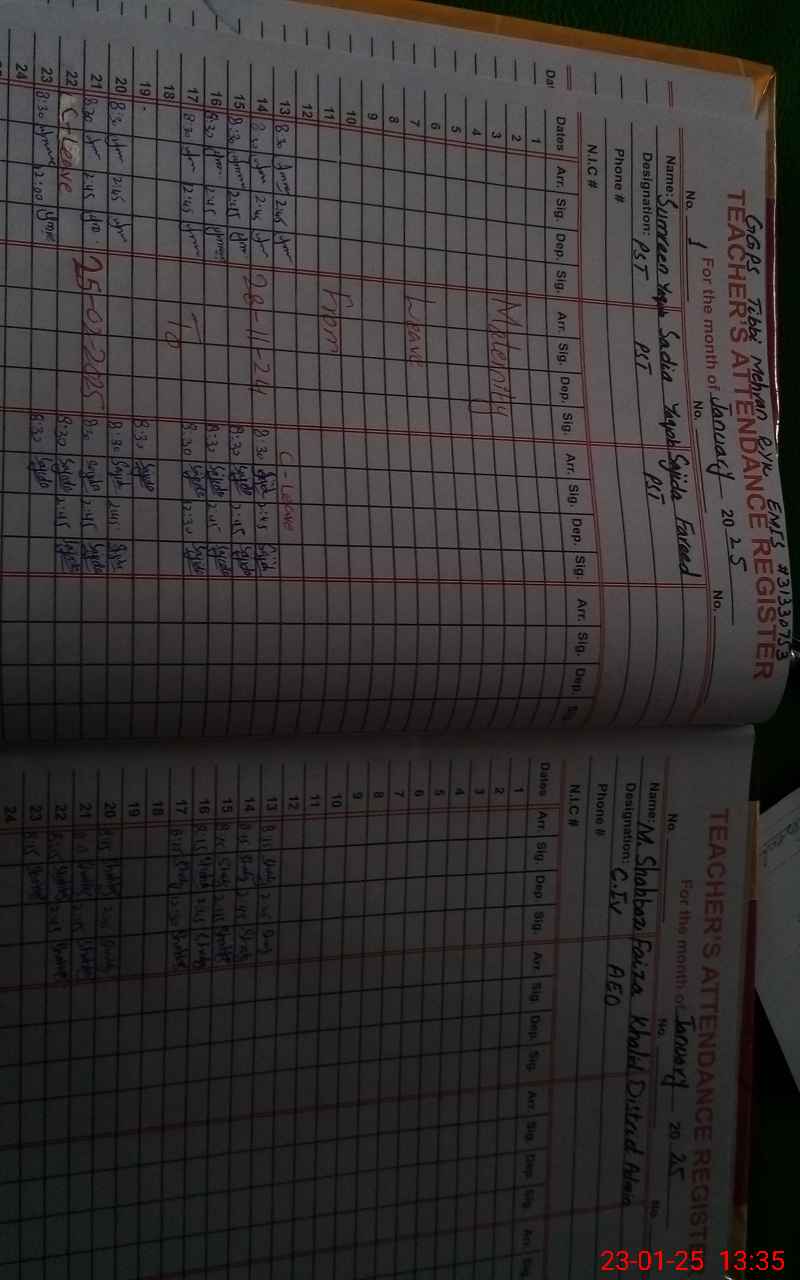 GGPS Tibbi Mehran RYK EMIS #31330753
TEACHER'S ATTENDANCE REGISTER
For the month of January 2025
No. 1 No. No.
Name: Sumreen Yaqub Sadia Yaqub Sajida Fareed
Designation: PST PST PST
Phone #
N.I.C #
Dates Arr. Sig. Dep. Sig. Arr. Sig. Dep. Sig. Arr. Sig. Dep. Sig. Arr. Sig. Dep.
1
2 Maternity
3
4
5
6
7 Leave
8
9
10
11 From
12
13 8:30 2:45 C-Leave
14 8:30 2:45 28-11-24 8:30 2:45
15 8:30 2:45 8:30 2:45
16 8:30 2:45 8:30 2:45
17 8:30 2:45 To 8:30 12:30
18
19 8:30
20 8:30 2:45 8:30 2:45
21 8:30 2:45 25-02-2025 8:30 2:45
22 C-Leave 8:30 2:45
23 8:30 12:00 8:30
24
TEACHER'S ATTENDANCE REGISTE
For the month of January 2025
No. No. No.
Name: M. Shahbaz Faiza Khalid District Admin
Designation: C.IV AEO
Phone #
N.I.C #
Dates Arr. Sig. Dep. Sig. Arr. Sig. Dep. Sig. Arr. Sig. Dep. Sig. Arr. Sig.
1
2
3
4
5
6
7
8
9
10
11
12
13 8:15 2:45
14 8:15 2:45
15 8:15 2:45
16 8:15 2:45
17 8:15 12:30
18
19
20 8:15 2:45
21 8:15 2:45
22 8:15 2:45
23 8:15
24
23-01-25 13:35